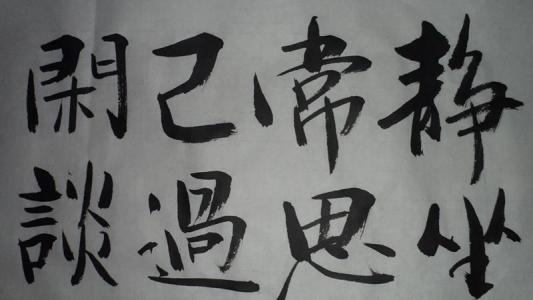 静坐
常思
己過
閑談